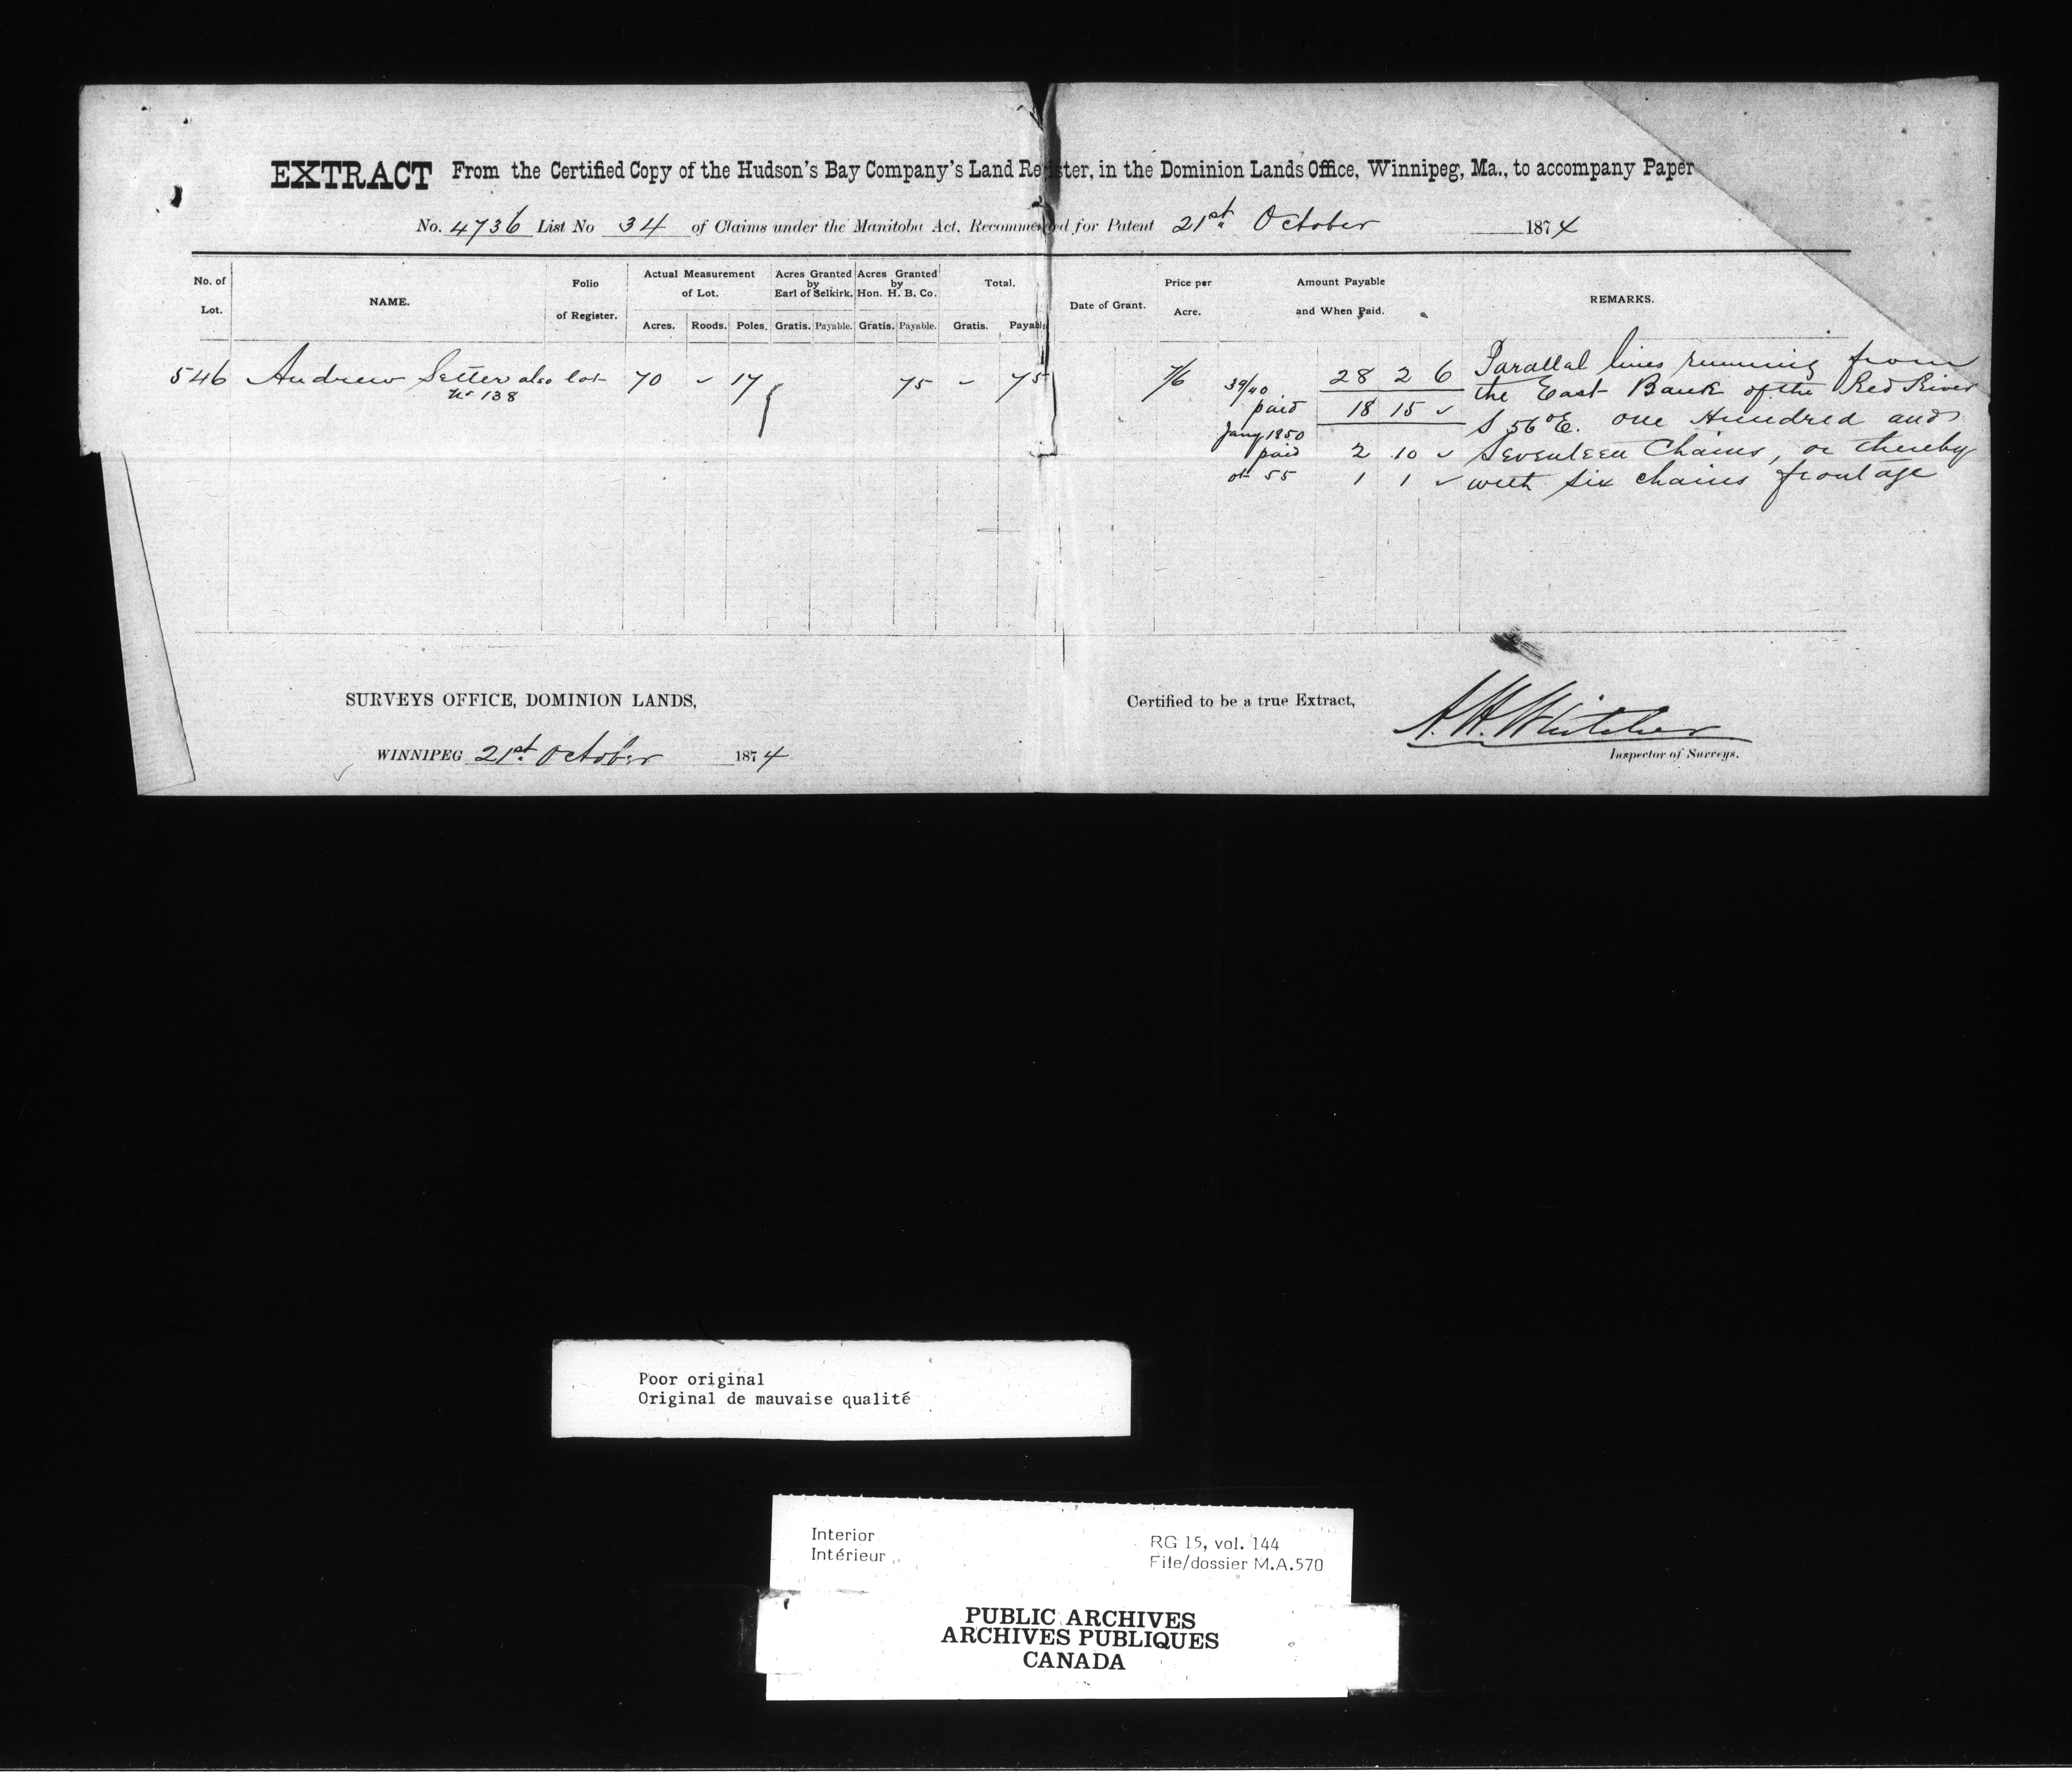 EXTRACT From the Certified Copy of the Hudson's Bay Company's Land Register, in the Dominion Lands Office, Winnipeg, Ma., to accompany Paper
No. 4736 List No 34 of Claims under the Manitoba Act, Recommended for Patent 21st October 1874
No. of Lot. NAME. Folio of Register. Actual Measurement of Lot. Acres Granted by Earl of Selkirk. Acres Granted by Hon. H. B. Co. Total. Date of Grant. Price per Acre. Amount Payable and When Paid. REMARKS.
Acres. Roods. Poles. Gratis. Payable. Gratis. Payable. Gratis. Payable.
546 Andrew Setter also lot 70 17 75 75 7/6 39/40 28 2 6 Parallal lines running from
No 138 paid 18 15 the East Bank of the Red River
Jany 1850 S 56°E. one Hundred and
paid 2 10 Seventeen Chains, or thereby
55 1 1 with six chains frontage
SURVEYS OFFICE, DOMINION LANDS,
WINNIPEG 21st October 1874
Certified to be a true Extract,
A. H. Whitcher
Inspector of Surveys.
Poor original
Original de mauvaise qualité
Interior
Intérieur
RG 15, vol. 144
File/dossier M.A.570
PUBLIC ARCHIVES
ARCHIVES PUBLIQUES
CANADA